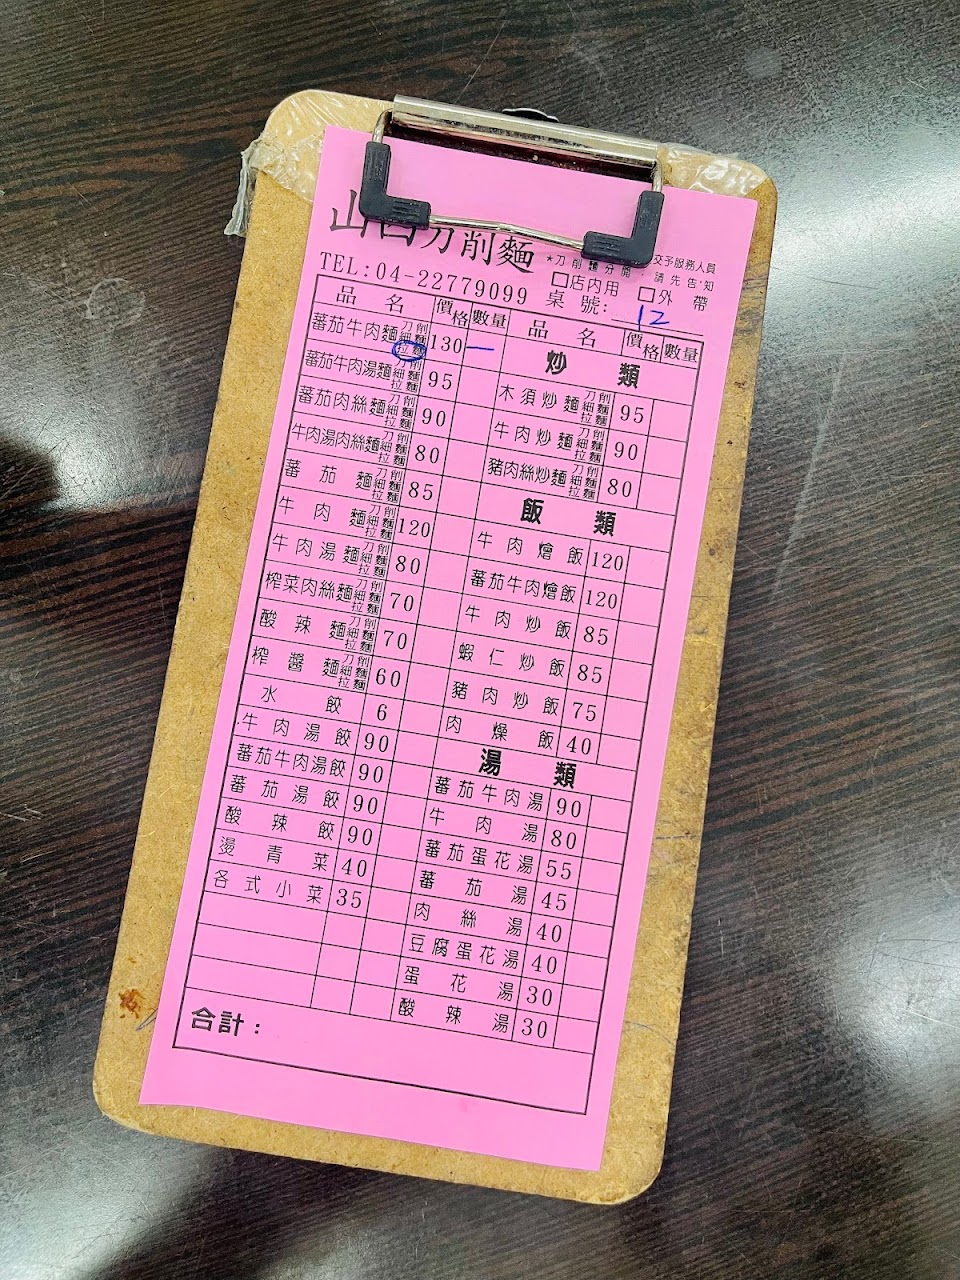 山西刀削麵
TEL:04-22779099
*刀削麵分開 交予服務人員
請先告知
□店內用 □外帶
桌號: 12
品名 價格 數量
蕃茄牛肉麵 刀削麵 細麵 拉麵 130 一
蕃茄牛肉湯麵 刀削麵 細麵 拉麵 95
蕃茄肉絲麵 刀削麵 細麵 拉麵 90
牛肉湯肉絲麵 刀削麵 細麵 拉麵 80
蕃茄麵 刀削麵 細麵 拉麵 85
牛肉麵 刀削麵 細麵 拉麵 120
牛肉湯麵 刀削麵 細麵 拉麵 80
榨菜肉絲麵 刀削麵 細麵 拉麵 70
酸辣麵 刀削麵 細麵 拉麵 70
榨醬麵 刀削麵 細麵 拉麵 60
水餃 6
牛肉湯餃 90
蕃茄牛肉湯餃 90
蕃茄湯餃 90
酸辣餃 90
燙青菜 40
各式小菜 35
合計:
品名 價格 數量
炒類
木須炒麵 刀削麵 細麵 拉麵 95
牛肉炒麵 刀削麵 細麵 拉麵 90
豬肉絲炒麵 刀削麵 細麵 拉麵 80
飯類
牛肉燴飯 120
蕃茄牛肉燴飯 120
牛肉炒飯 85
蝦仁炒飯 85
豬肉炒飯 75
肉燥飯 40
湯類
蕃茄牛肉湯 90
牛肉湯 80
蕃茄蛋花湯 55
蕃茄湯 45
肉絲湯 40
豆腐蛋花湯 40
蛋花湯 30
酸辣湯 30